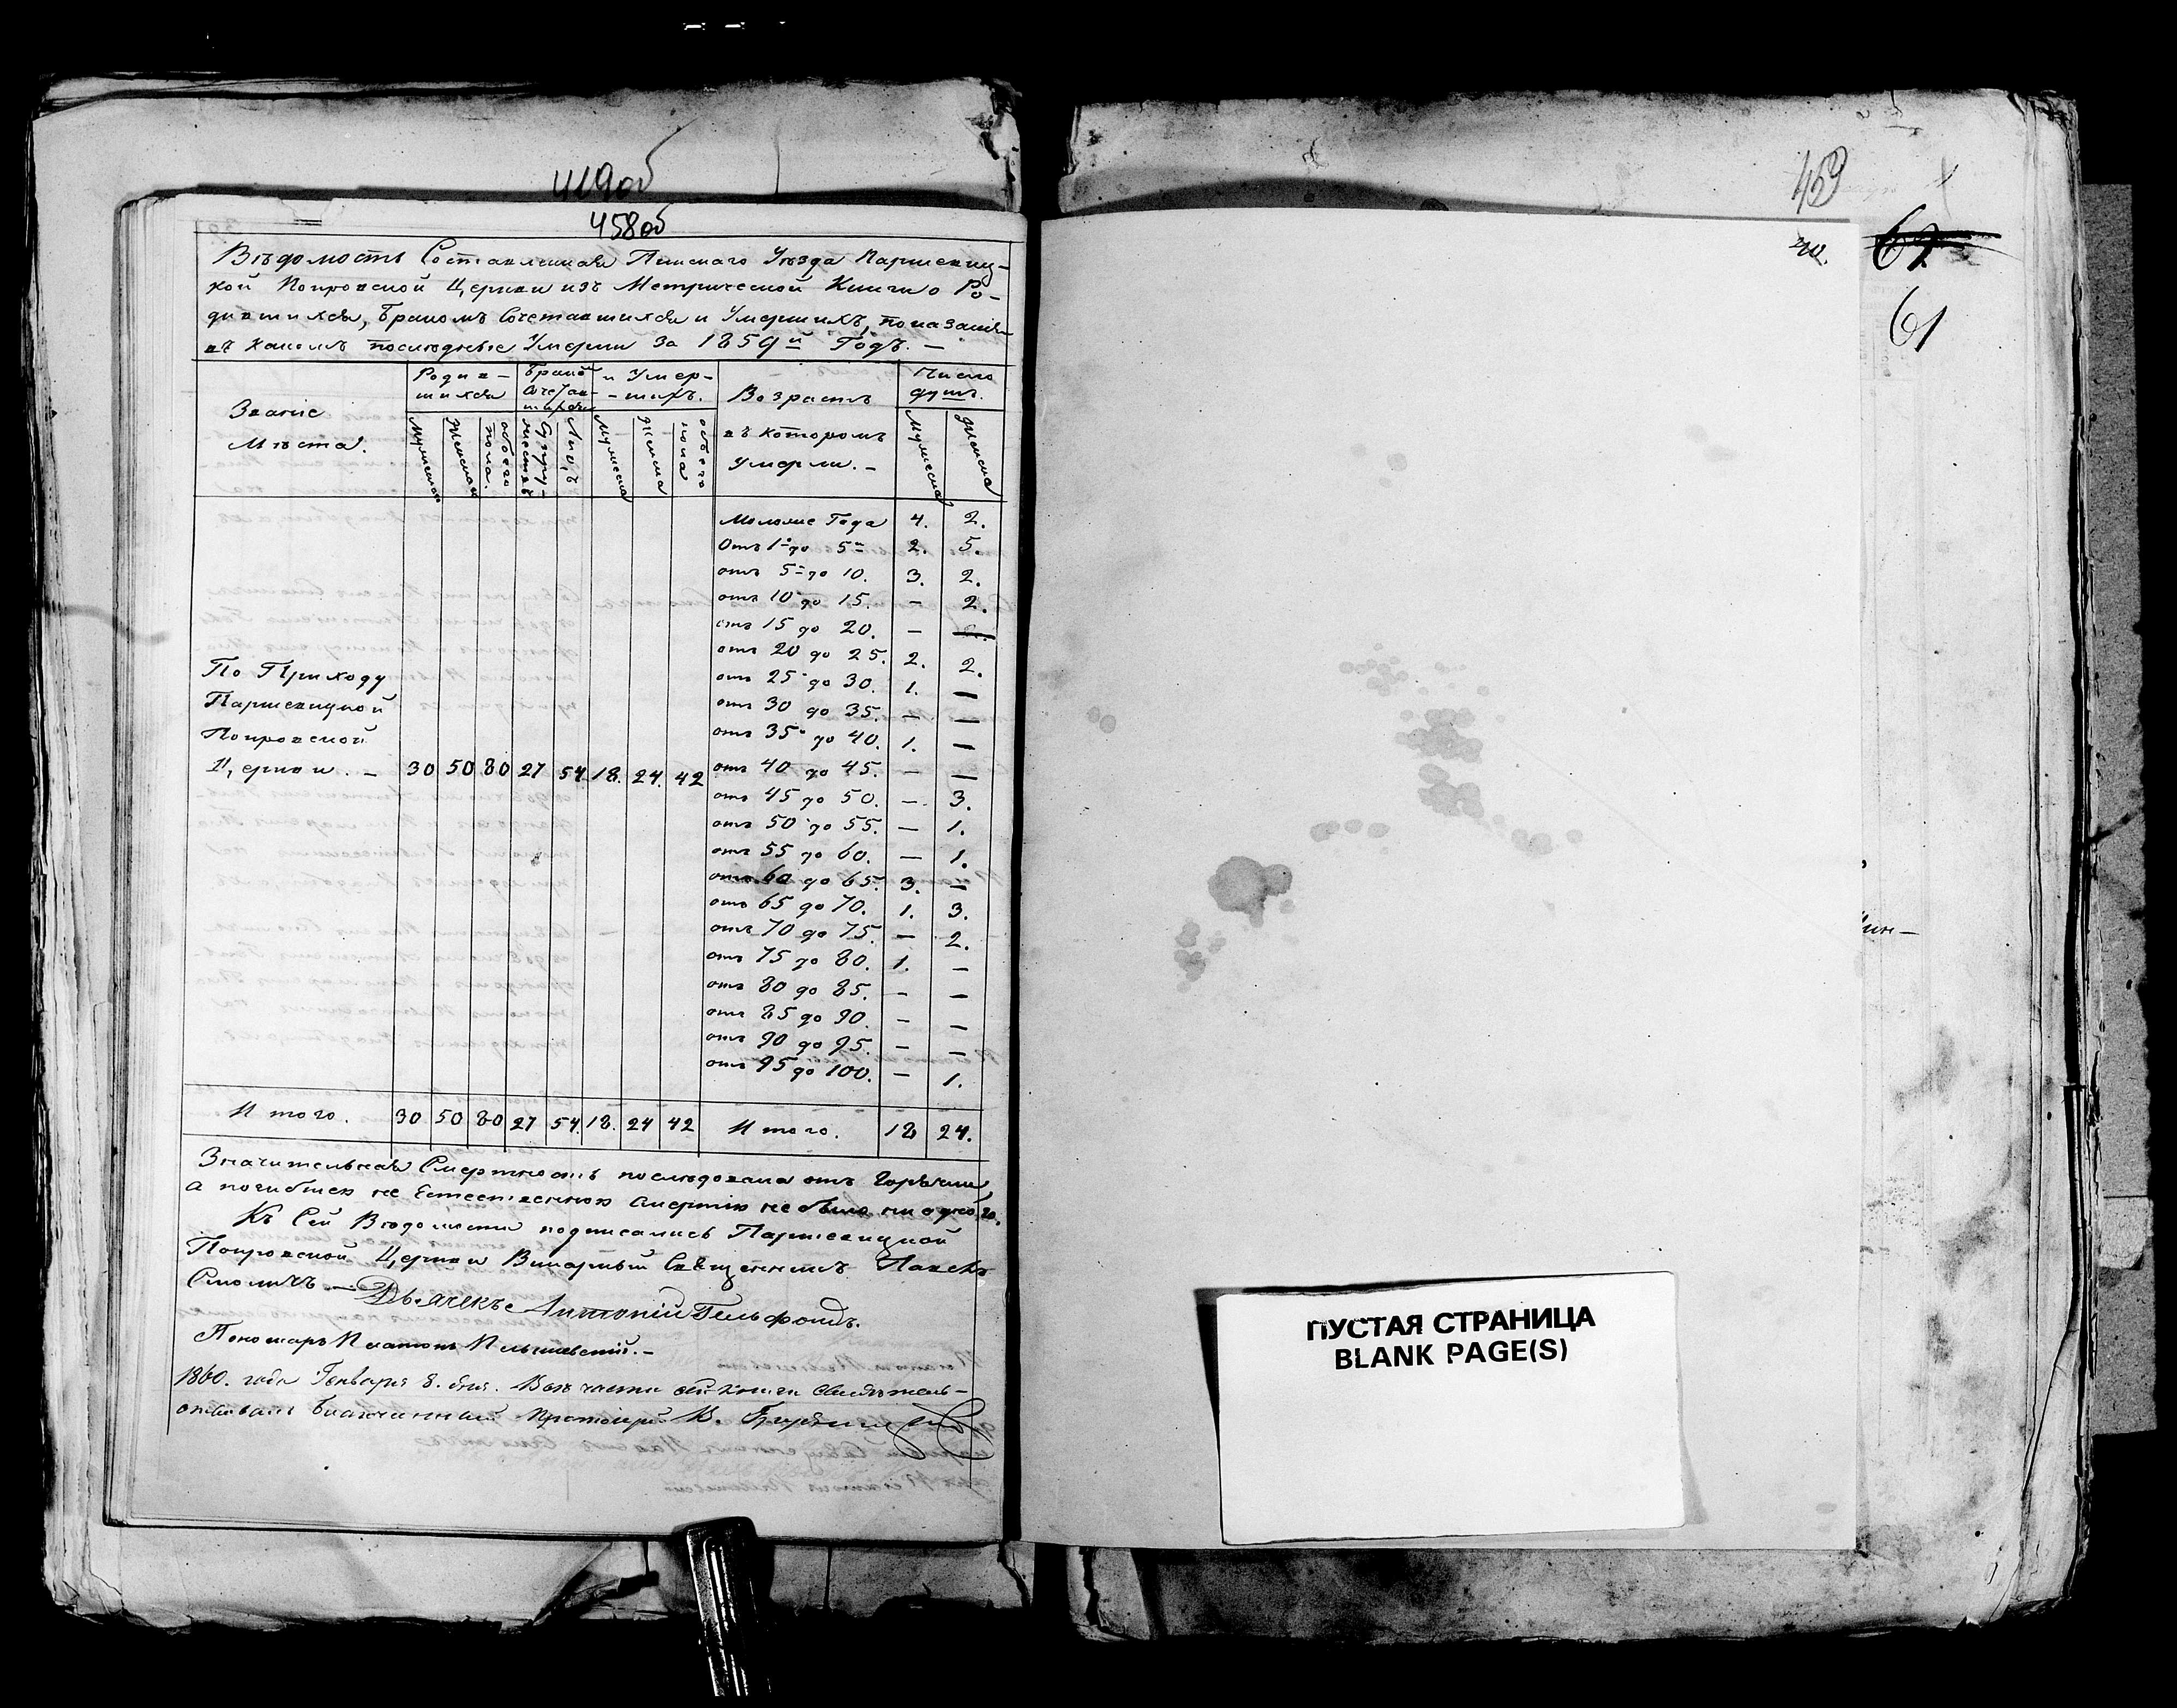 419об
458об
Вѣдомость Составленная Пинскаго Уѣзда Паршевиц-
кой Покровской Церкви изъ Метрической Книги о Ро-
дившихся, Бракомъ Сочетавшихся и Умершихъ, показанія
въ какомъ послѣдніе Умерли за 1859й Годъ. —
Званіе Мѣста.
Родив-
шихся
Мужеска
Женска
обоего пола.
Бракомъ
Сочетав-
шихся
Супру-
жествъ
Лицъ
и Умер-
-шихъ.
Мужеска
Женска
обоего пола
Возрастъ
въ которомъ
Умерли. —
Число
душъ.
Мужеска
Женска
Моложе Года 4. 2.
Отъ 1го до 5и 2. 5.
отъ 5и до 10. 3. 2.
отъ 10 до 15. — 2.
отъ 15 до 20. — —
отъ 20 до 25. 2. 2.
отъ 25 до 30. 1. —
отъ 30 до 35. — —
отъ 35 до 40. 1. —
отъ 40 до 45. — —
отъ 45 до 50. — 3.
отъ 50 до 55. — 1.
отъ 55 до 60. — 1.
отъ 60 до 65. 3. —
отъ 65 до 70. 1. 3.
отъ 70 до 75. — 2.
отъ 75 до 80. 1. —
отъ 80 до 85. — —
отъ 85 до 90. — —
отъ 90 до 95. — —
отъ 95 до 100. — 1.
По Приходу
Паршевицкой
Покровской
Церкви. — 30 50 80 27 54 18. 24. 42
Итого. 30 50 80 27 54. 18. 24 42 Итого. 18 24.
Значительная Смертность послѣдовала отъ Горячки
а погибшех не Естественною смертію не было ни одного.
Къ Сей Вѣдомости подписались Паршевицкой
Покровской Церкви Викарный Священникъ Павелъ
Смоличъ — Дьячекъ Антоній Гельфондъ.
Пономарь Платонъ
1860. года Генваря 8. дня. сей книги свидѣтель-
ствовалъ Благочинный Протоіерей В.
459
420.
62
61
ин—
ПУСТАЯ СТРАНИЦА
BLANK PAGE(S)